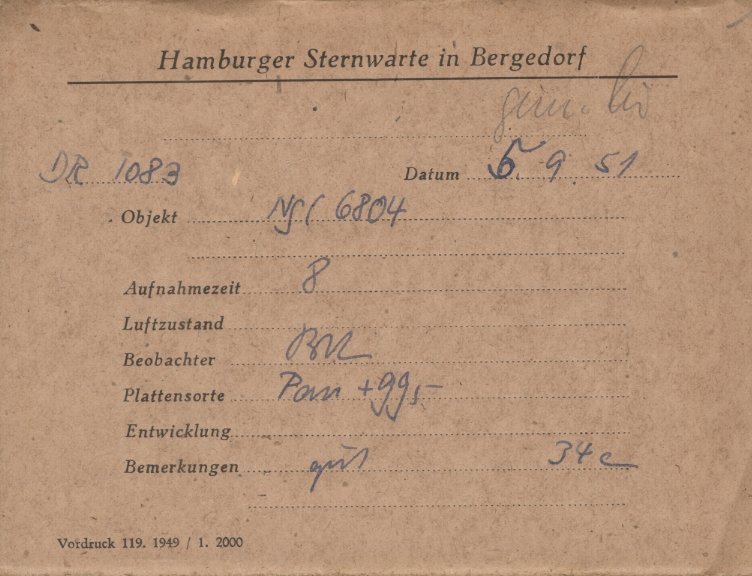 Hamburger Sternwarte in Bergedorf
DR 1083 Datum 5. 9. 51
Objekt NGC 6804
Aufnahmezeit 8
Luftzustand
Beobachter
Plattensorte Pan + 99,-
Entwicklung
Bemerkungen gut 34c
Vordruck 119. 1949 / 1. 2000